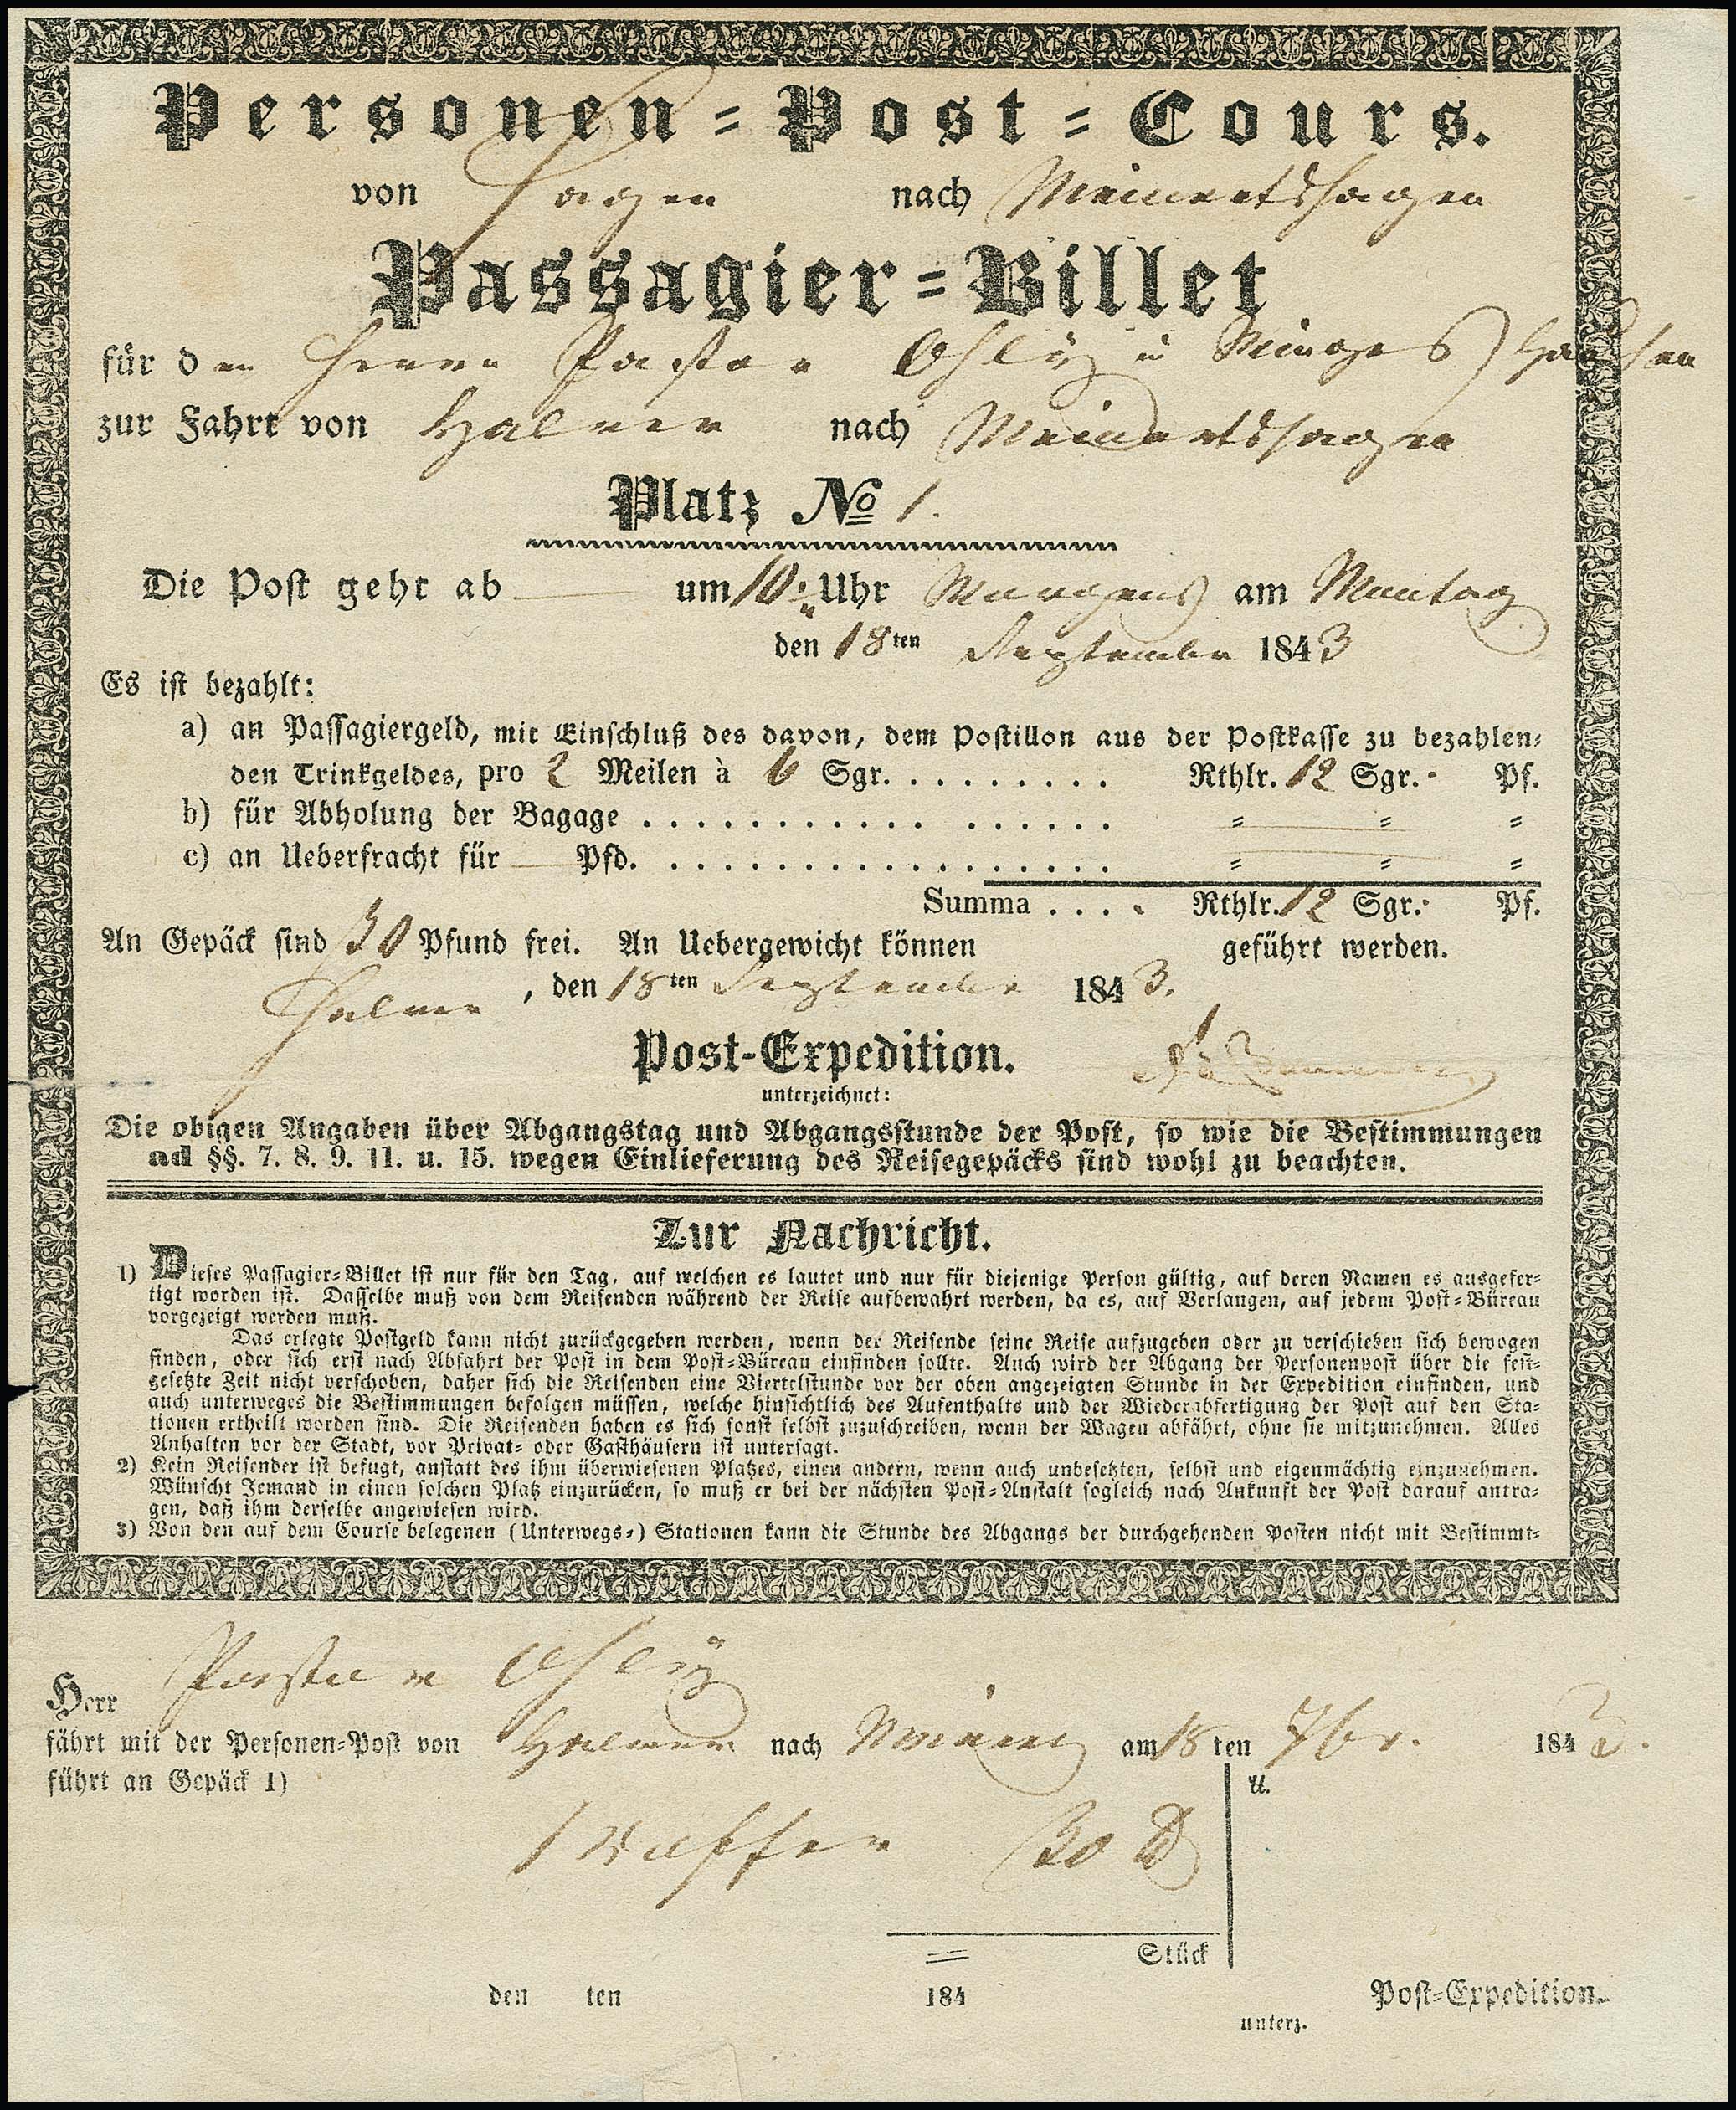 Personen=Post=Cours.
von Hagen nach Meinertshagen
Passagier=Billet
für den Herrn Pastor Ohly in
zur Fahrt von Halver nach Meinertshagen
Platz No 1.
Die Post geht ab — um 10 Uhr Morgens am Montag
den 18ten September 1843
Es ist bezahlt:
a) an Passagiergeld, mit Einschluß des davon, dem Postillon aus der Postkasse zu bezahlen=
den Trinkgeldes, pro 2 Meilen à 6 Sgr. . . . . . . . . . Rthlr. 12 Sgr. - Pf.
b) für Abholung der Bagage . . . . . . . . . . . . . . . . . . = = =
c) an Ueberfracht für — Pfd. . . . . . . . . . . . . . . . . . . = = =
Summa . . . . Rthlr. 12 Sgr. - Pf.
An Gepäck sind 30 Pfund frei. An Uebergewicht können geführt werden.
Halver, den 18ten September 1843.
Post-Expedition.
unterzeichnet:
Die obigen Angaben über Abgangstag und Abgangsstunde der Post, so wie die Bestimmungen
ad §§. 7. 8. 9. 11. u. 15. wegen Einlieferung des Reisegepäcks sind wohl zu beachten.
Zur Nachricht.
1) Dieses Passagier=Billet ist nur für den Tag, auf welchen es lautet und nur für diejenige Person gültig, auf deren Namen es ausgefer=
tigt worden ist. Dasselbe muß von dem Reisenden während der Reise aufbewahrt werden, da es, auf Verlangen, auf jedem Post=Büreau
vorgezeigt werden muß.
Das erlegte Postgeld kann nicht zurückgegeben werden, wenn der Reisende seine Reise aufzugeben oder zu verschieben sich bewogen
finden, oder sich erst nach Abfahrt der Post in dem Post=Büreau einfinden sollte. Auch wird der Abgang der Personenpost über die fest=
gesetzte Zeit nicht verschoben, daher sich die Reisenden eine Viertelstunde vor der oben angezeigten Stunde in der Expedition einfinden, und
auch unterweges die Bestimmungen befolgen müssen, welche hinsichtlich des Aufenthalts und der Wiederabfertigung der Post auf den Sta=
tionen ertheilt worden sind. Die Reisenden haben es sich sonst selbst zuzuschreiben, wenn der Wagen abfährt, ohne sie mitzunehmen. Alles
Anhalten vor der Stadt, vor Privat= oder Gasthäusern ist untersagt.
2) Kein Reisender ist befugt, anstatt des ihm überwiesenen Platzes, einen andern, wenn auch unbesetzten, selbst und eigenmächtig einzunehmen.
Wünscht Jemand in einen solchen Platz einzurücken, so muß er bei der nächsten Post=Anstalt sogleich nach Ankunft der Post darauf antra=
gen, daß ihm derselbe angewiesen wird.
3) Von den auf dem Course belegenen (Unterwegs=) Stationen kann die Stunde des Abgangs der durchgehenden Posten nicht mit Bestimmt=
Herr Pastor Ohly
fährt mit der Personen=Post von Halver nach am 18ten 7br. 1843.
führt an Gepäck 1) U.
1 Koffer 30
Stück
den ten 184
Post=Expedition.
unterz.